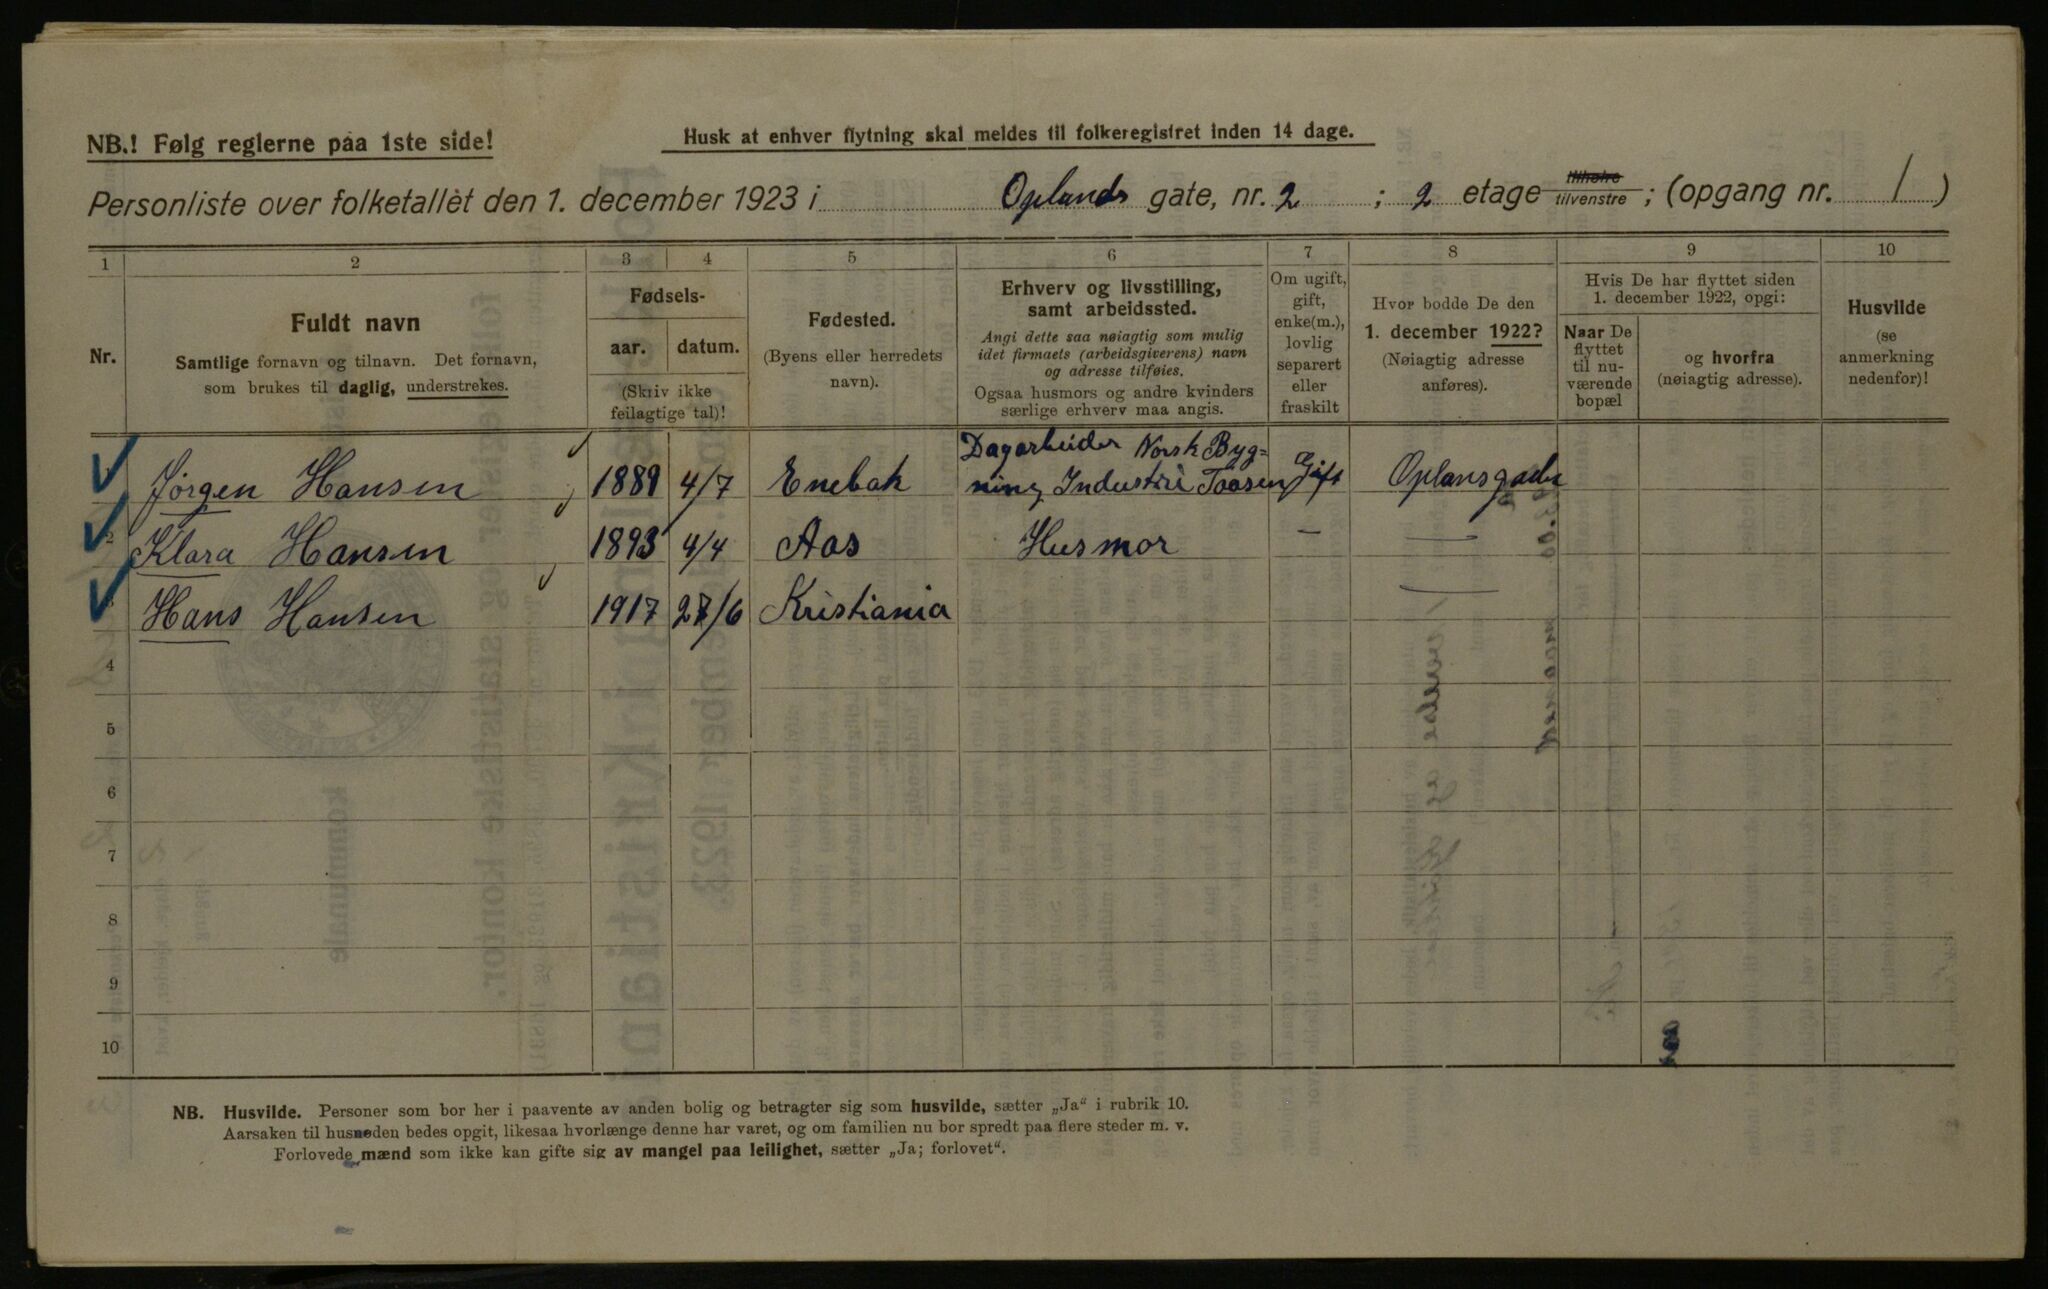 NB.! Følg reglerne paa 1ste side!
Husk at enhver flytning skal meldes til folkeregistret inden 14 dage.
Personliste over folketallèt den 1. december 1923 i Oplands gate, nr. 2 ; 2 etage tilhøire tilvenstre ; (opgang nr. 1 )
1 2 3 4 5 6 7 8 9 10
Nr.
Fuldt navn
Samtlige fornavn og tilnavn. Det fornavn,
som brukes til daglig, understrekes.
Fødsels-
aar. datum.
(Skriv ikke
feilagtige tal)!
Fødested.
(Byens eller herredets
navn).
Erhverv og livsstilling,
samt arbeidssted.
Angi dette saa nøiagtig som mulig
idet firmaets (arbeidsgiverens) navn
og adresse tilføies.
Ogsaa husmors og andre kvinders
særlige erhverv maa angis.
Om ugift,
gift,
enke(m.),
lovlig
separert
eller
fraskilt
Hvor bodde De den
1. december 1922?
(Nøiagtig adresse
anføres).
Hvis De har flyttet siden
1. december 1922, opgi:
Naar De
flyttet
til nu-
værende
bopæl
og hvorfra
(nøiagtig adresse).
Husvilde
(se
anmerkning
nedenfor)!
Dagarbeider Norsk Byg=
Jørgen Hansen 1889 4/7 Enebak ning Industri Taasen Gift Oplansgade
2 Klara Hansen 1893 4/4 Aas Husmor — —
3 Hans Hansen 1917 27/6 Kristiania —
4
5
6
7
8
9
10
NB. Husvilde. Personer som bor her i paavente av anden bolig og betragter sig som husvilde, sætter „Ja“ i rubrik 10.
Aarsaken til husnøden bedes opgit, likesaa hvorlænge denne har varet, og om familien nu bor spredt paa flere steder m. v.
Forlovede mænd som ikke kan gifte sig av mangel paa leilighet, sætter „Ja; forlovet“.